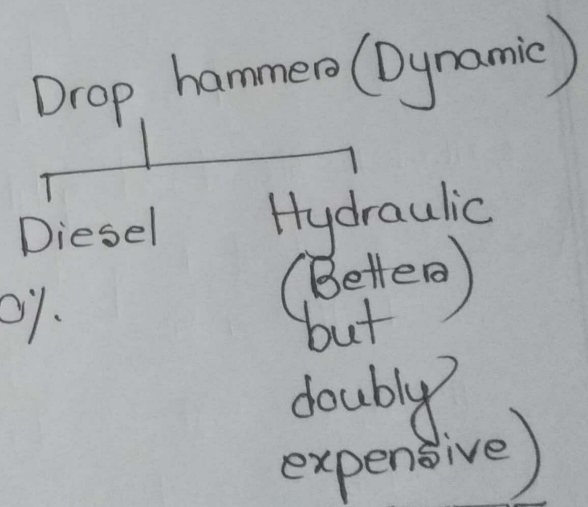 Drop hammer (Dynamic)
Diesel
Hydraulic
(Better)
but
doubly
expensive)
0%.